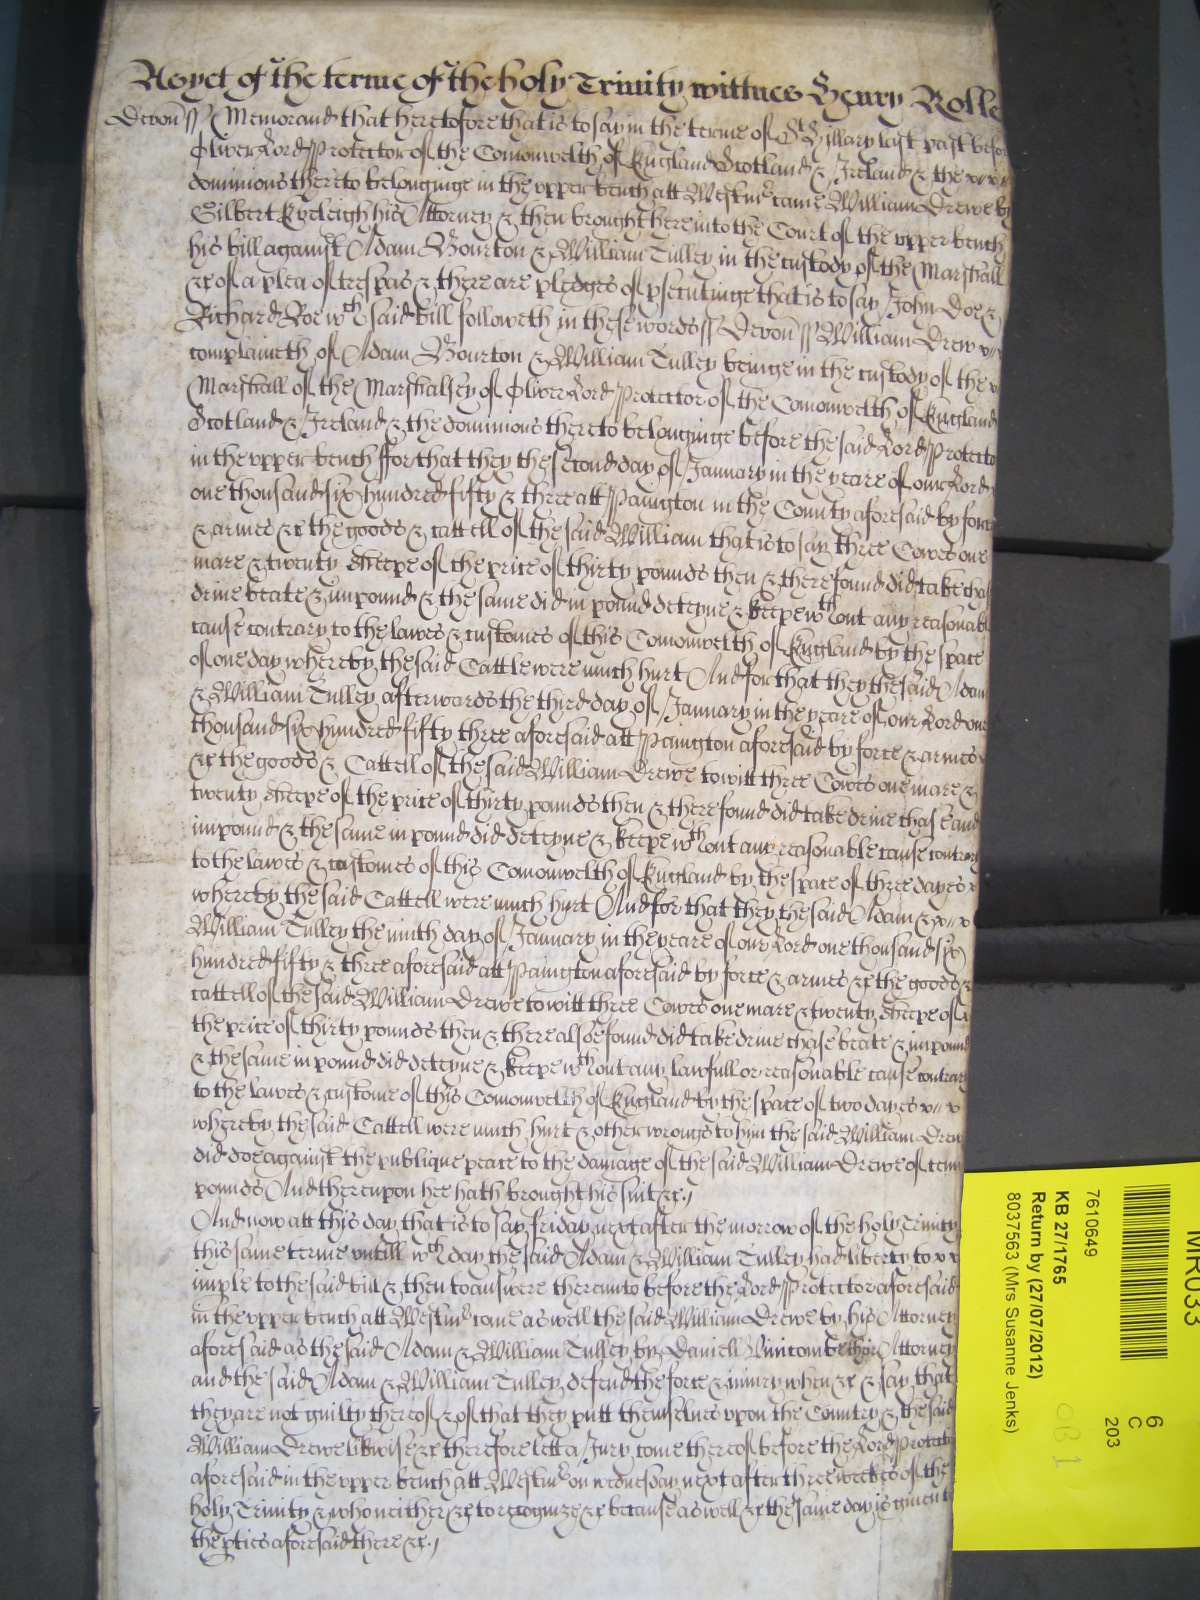 As yet of the terme of the holy Trinity wittnes Henry Rolle
Devon ss Memorand that heretofore that is to say in the terme of St Hillary last past befor
Oliver Lord Protector of the Comonwelth of England Scotland & Ireland & the
dominions thereto belonginge in the upper bench att Westmr came William Drewe by
Gilbert Eveleigh his Attorney & then brought here into the Court of the upper bench
his bill against Adam Bourton & William Tulley in the custody of the Marshall
&c of a plea of trespas & there are pledges of psecutinge that is to say John Doe &
Richard Roe wch said bill followeth in these words ss Devon ss William Drew
complaineth of Adam Bourton & William Tulley beinge in the custody of the
Marshall of the Marshalsey of Oliver Lord Protector of the Comonwelth of England
Scotland & Ireland & the dominions thereto belonginge before the said Lord Protector
in the upper bench ffor that they the second day of January in the yeare of our Lord
one thousand six hundred fifty & three att Paington in the County aforesaid by force
& armes &c the goods & cattell of the said William that is to say three Cowes one
mare & twenty sheepe of the price of thirty pounds then & there found did take chase
drive beate & impound & the same did in pound deteyne & keepe wthout any reasonable
cause contrary to the lawes & customes of this Comonwelth of England by the space
of one day whereby the said Cattle were much hurt And for that they the said Adam
& William Tulley afterwards the third day of January in the yeare of our Lord one
thousand six hundred fifty three aforesaid att Paington aforesaid by force & armes
&c the goods & Cattell of the said William Drewe to witt three Cowes one mare &
twenty sheepe of the price of thirty pounds then & there found did take drive chase and
impound & the same in pound did deteyne & keepe wthout any reasonable cause contrary
to the lawes & customes of this Comonwelth of England by the space of three dayes
whereby the said Cattell were much hurt And for that they the said Adam &
William Tulley the ninth day of January in the yeare of our Lord one thousand six
hundred fifty & three aforesaid att Paington aforesaid by force & armes &c the goods &
cattell of the said William Drewe to witt three Cowes one mare & twenty sheepe of
the price of thirty pounds then & there alsoe found did take drive chase beate & impound
& the same in pound did deteyne & keepe wthout any lawfull or reasonable cause contrary
to the lawes & custome of this Comonwelth of England by the space of two dayes
whereby the said Cattell were much hurt & other wrongs to him the said William Drew
did doe against the publique peace to the damage of the said William Drewe of tenn
pounds And thereupon hee hath brought his suit &c
And now att this day that is to say friday next after the morrow of the holy Trinity
this same terme untill wch day the said Adam & William Tulley had liberty to
imple to the said bill & then to answere thereunto before the Lord Protector aforesaid
in the upper bench att Westmr come as well the said William Drewe by his Attorney
aforesaid as the said Adam & William Tulley by Daniell Vinicombe their Attorney
and the said Adam & William Tulley defend the force & iniury when &c & say that
they are not guilty thereof & of that they putt themselves upon the Country & the said
William Drewe likwise &c therefore lett a Jury come thereof before the Lord Protector
aforesaid in the upper bench att Westmr on wednesday next after three weekes of the
holy Trinity & who neither &c to recognize &c because as well &c the same day is given to
the pties aforesaid there &c
MR033
6
C
203
7610649
KB 27/1765
Return by (27/07/2012)
8037563 (Mrs Susanne Jenks)